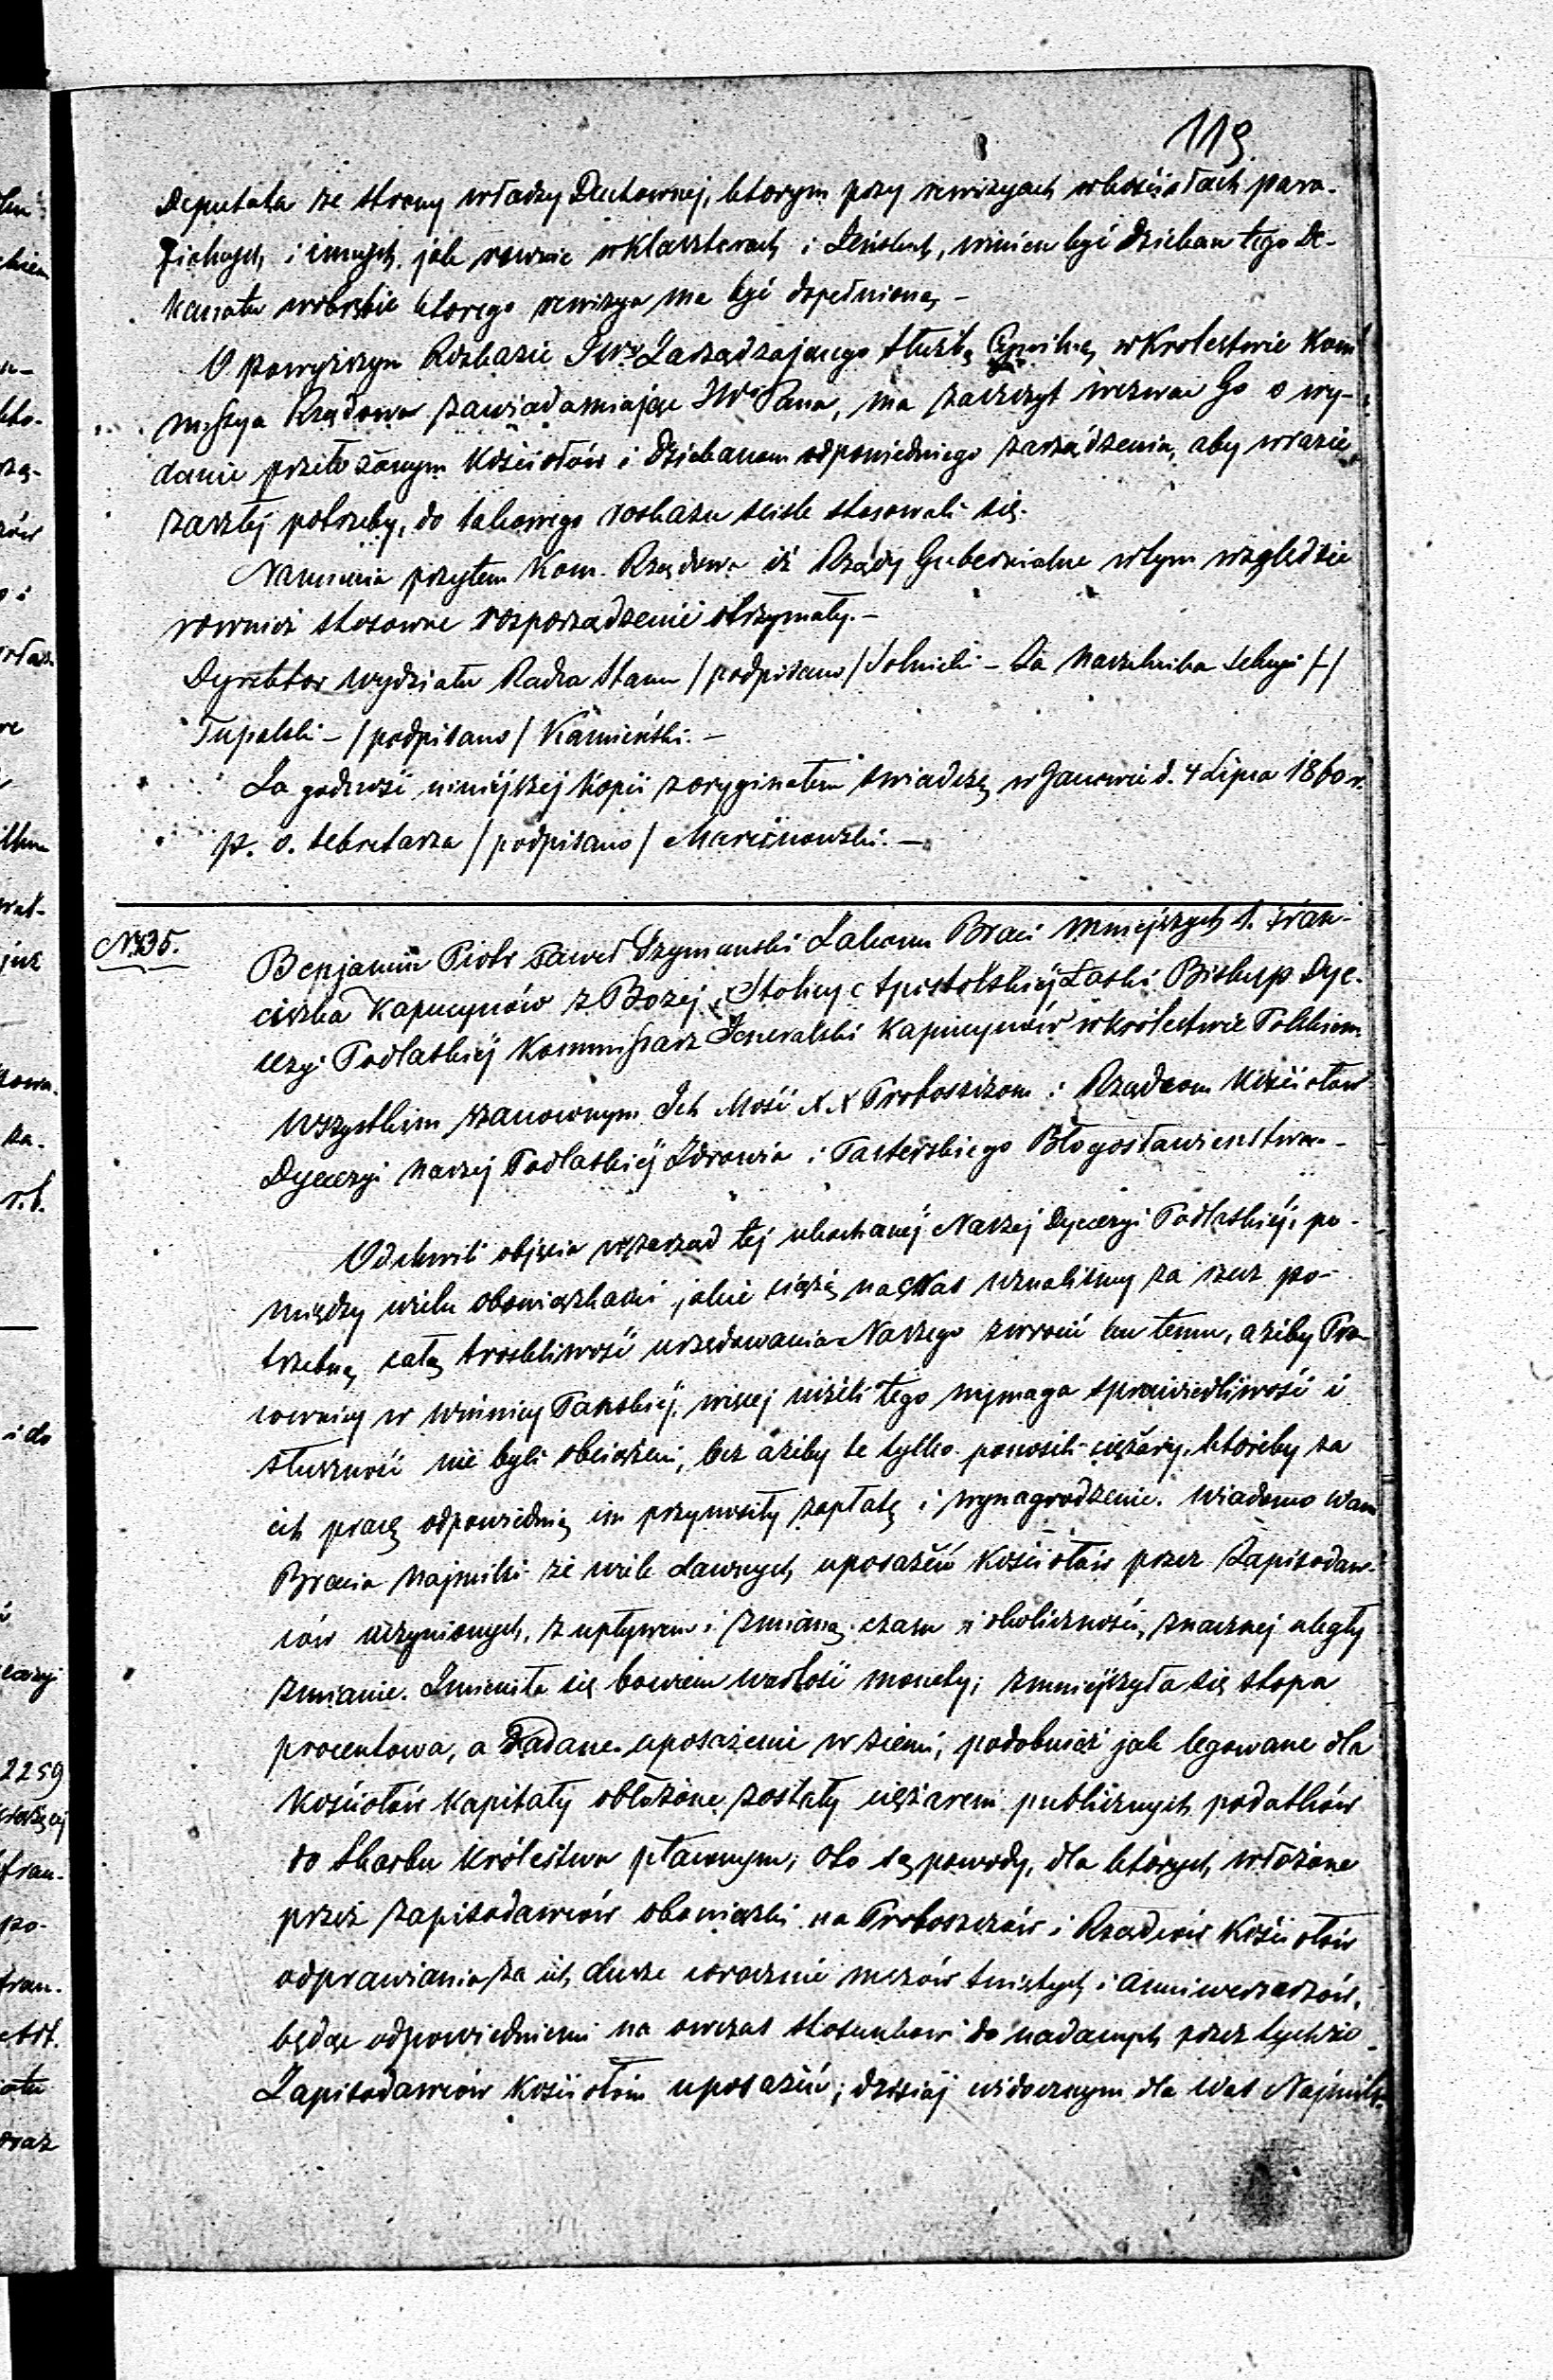 119.
Deputata ze strony władzy Duchownej, ktorym przy rewizyach w kosciołach para-
fialnych i innych jak rownie w klasztorach i Żeńskich, winien być Dziekan tego De-
kanatu w obrębie ktorego rewizya ma być dopełnioną –
O powyższym Rozkazie JWo Zarządzającego służbą Cywilną w Krolestwie Kom-
missya Rządowa zawiadamiając JWo Pana, ma zaszczyt wezwać Go o wy-
danie przełożonym Kościołów i Dziekanom odpowiedniego zarządzenia, aby w razie
zaszłej potrzeby, do takowego roskazu scisle stosowali się.
Namienia przytem Kom. Rządowa iż Rządy Gubernialne w tym względzie
rownież stosowne rozporządzenie otrzymały. –
Dyrektor Wydziału Radca Stanu /podpisano/ Solnicki – Za Naczelnika Sekcyi /–/
Tupalski – /podpisano/ Kamieński. –
Za zgodność niniejszej kopii z oryginałem swiadczę w Janowie d. 4 Lipca 1860 r.
p. o. sekretarza /podpisano/ Marcinowski. –
N. 35.
Benjamin Piotr Paweł Szymanski Zakonu Braci Mniejszych S. Fran-
ciszka Kapucynów z Bożej i Stolicy Apostolskiéj Łaski Biskup Dye-
cezyi Podlaskiéj Kommissarz Jeneralski Kapucynów w Królestwie Polskiem
Wszystkim szanownym Ich Mość X X Proboszczom i Rządcom Kościołów
Dyecezyi Naszej Podlaskiéj Zdrowia i Pasterskiego Błogosławienstwa. –
Od chwili objęcia w zarząd tej ukochanéj Naszej Dyecezyi Podlaskiéj, po-
między wielu obowiązkami jakie ciążą na Nas uznaliśmy za rzecz po-
trzebną całą troskliwość urzędowania Naszego zwrocić ku temu, ażeby Pra-
cownicy w Winnicy Pańskiéj, więcej niżeli tego wymaga sprawiedliwość i
słuszność nie byli obciążeni, lecz ażeby te tylko ponosili ciężary, któreby za
ich pracę odpowiednią im przynosiły zapłatę i wynagrodzenie. Wiadomo Wam
Bracia Najmilsi że wiele dawnych uposażeń Kościołów przez Zapisodaw-
ców uczynionych, z upływem i zmianą czasu i okoliczności, znacznej uległy
zmianie. Zmieniła się bowiem wartość monety; zmniejszyła się stopa
procentowa, a nadane uposażenie w ziemi, podobnież jak legowane dla
Kościołów Kapitały obłożone zostały ciężarem publicznych podatków
do Skarbu Królestwa płaconym; Oto są powody, dla których włożone
przez zapisodawców obowiązki na Proboszczów i Rządców Kościołów
odprawiania za ich dusze corocznie mszów świętych i anniwersarzów,
będąc odpowiedniemi na owczas stosunkowi do nadanych przez tychże
Zapisodawców Kościołom uposażeń; dzisiaj widocznym dla Was Najmils-